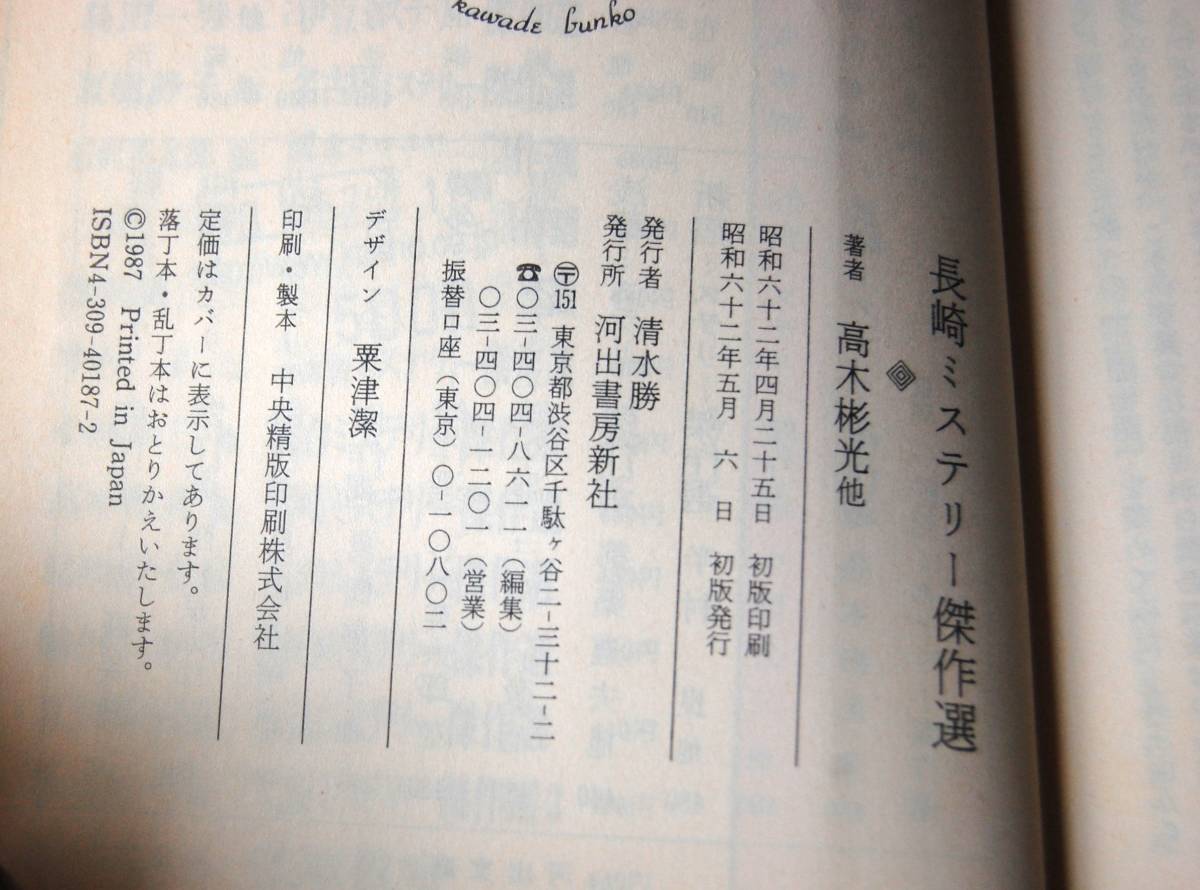 kawade bunko
長崎ミステリー傑作選
著者 高木彬光他
昭和六十二年四月二十五日 初版印刷
昭和六十二年五月 六 日 初版発行
発行者 清水勝
発行所 河出書房新社
〒151 東京都渋谷区千駄ヶ谷二-三十二-二
☎〇三-四〇四-八六一一（編集）
〇三-四〇四-一二〇一（営業）
振替口座（東京）〇-一〇八〇二
デザイン 粟津潔
印刷・製本 中央精版印刷株式会社
定価はカバーに表示してあります。
落丁本・乱丁本はおとりかえいたします。
©1987 Printed in Japan
ISBN4-309-40187-2